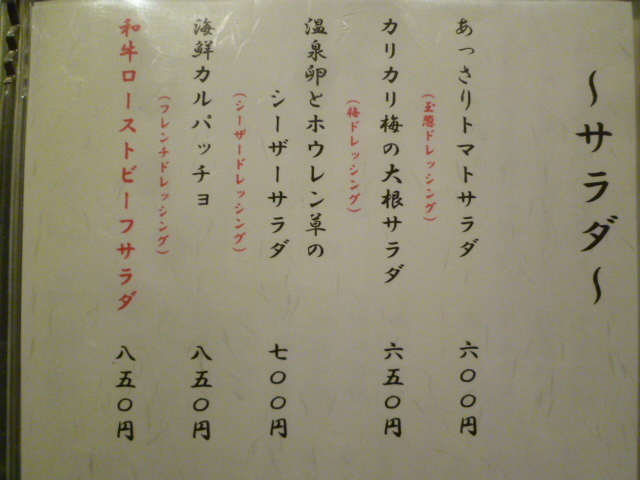 ～サラダ～
あっさりトマトサラダ 六〇〇円
(玉葱ドレッシング)
カリカリ梅の大根サラダ 六五〇円
(梅ドレッシング)
温泉卵とホウレン草の
シーザーサラダ 七〇〇円
(シーザードレッシング)
海鮮カルパッチョ 八五〇円
(フレンチドレッシング)
和牛ローストビーフサラダ 八五〇円